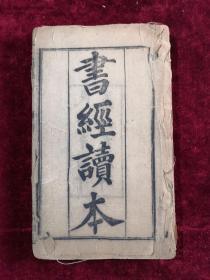 書經讀本